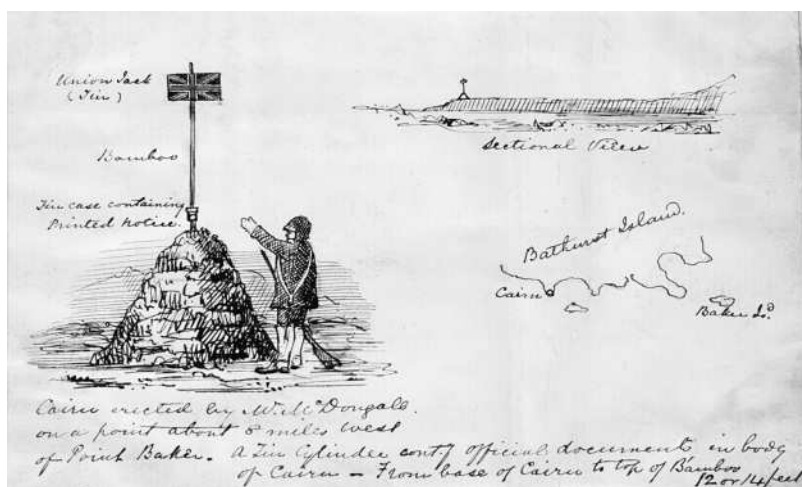 Union Jack
(Tin)
Bamboo
Tin case containing
Printed Notice.
Sectional View
Bathurst Island.
Cairn
Baker Id.
Cairn erected by Mr. McDougall.
on a point about 8 miles West
of Point Baker. A Tin Cylinder contg official documents in body
of Cairn – From base of Cairn to top of Bamboo
12 or 14 feet